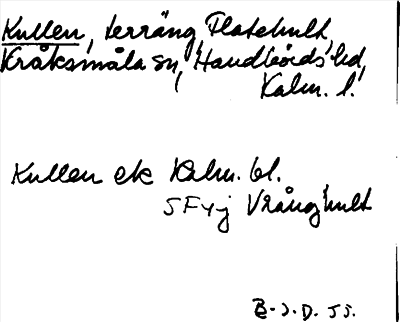 Kullen, terräng, Flatehult,
Kråksmåla sn, Handbörds hd,
Kalm. l.
Kullen ek Kalm. bl.
5F4j Vrånghult
B-J.D. 55.